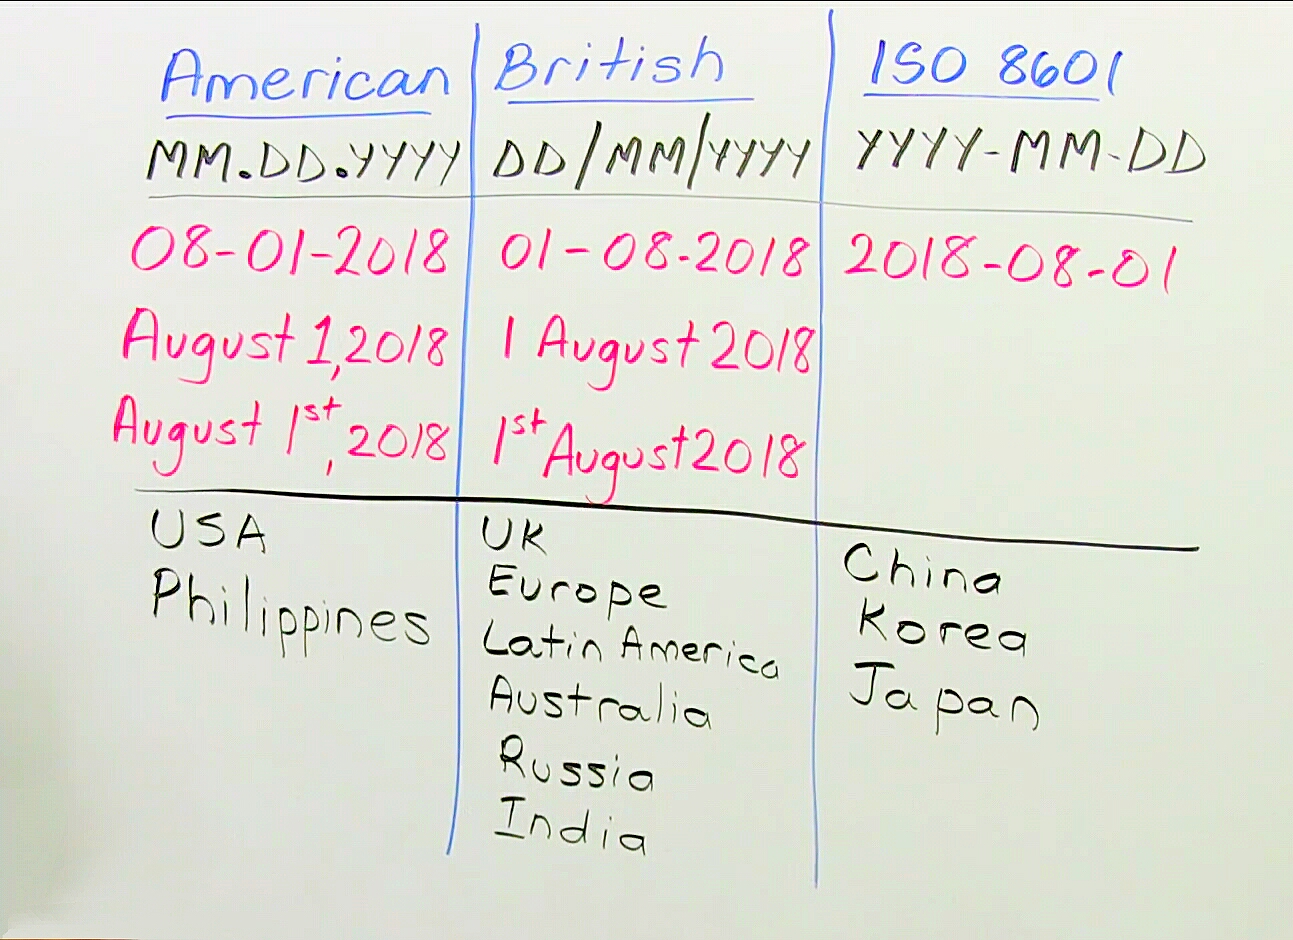 American British ISO 8601
MM.DD.YYYY DD/MM/YYYY YYYY-MM-DD
08-01-2018 01-08-2018 2018-08-01
August 1, 2018 1 August 2018
August 1st, 2018 1st August 2018
USA UK China
Philippines Europe Korea
Latin America Japan
Australia
Russia
India